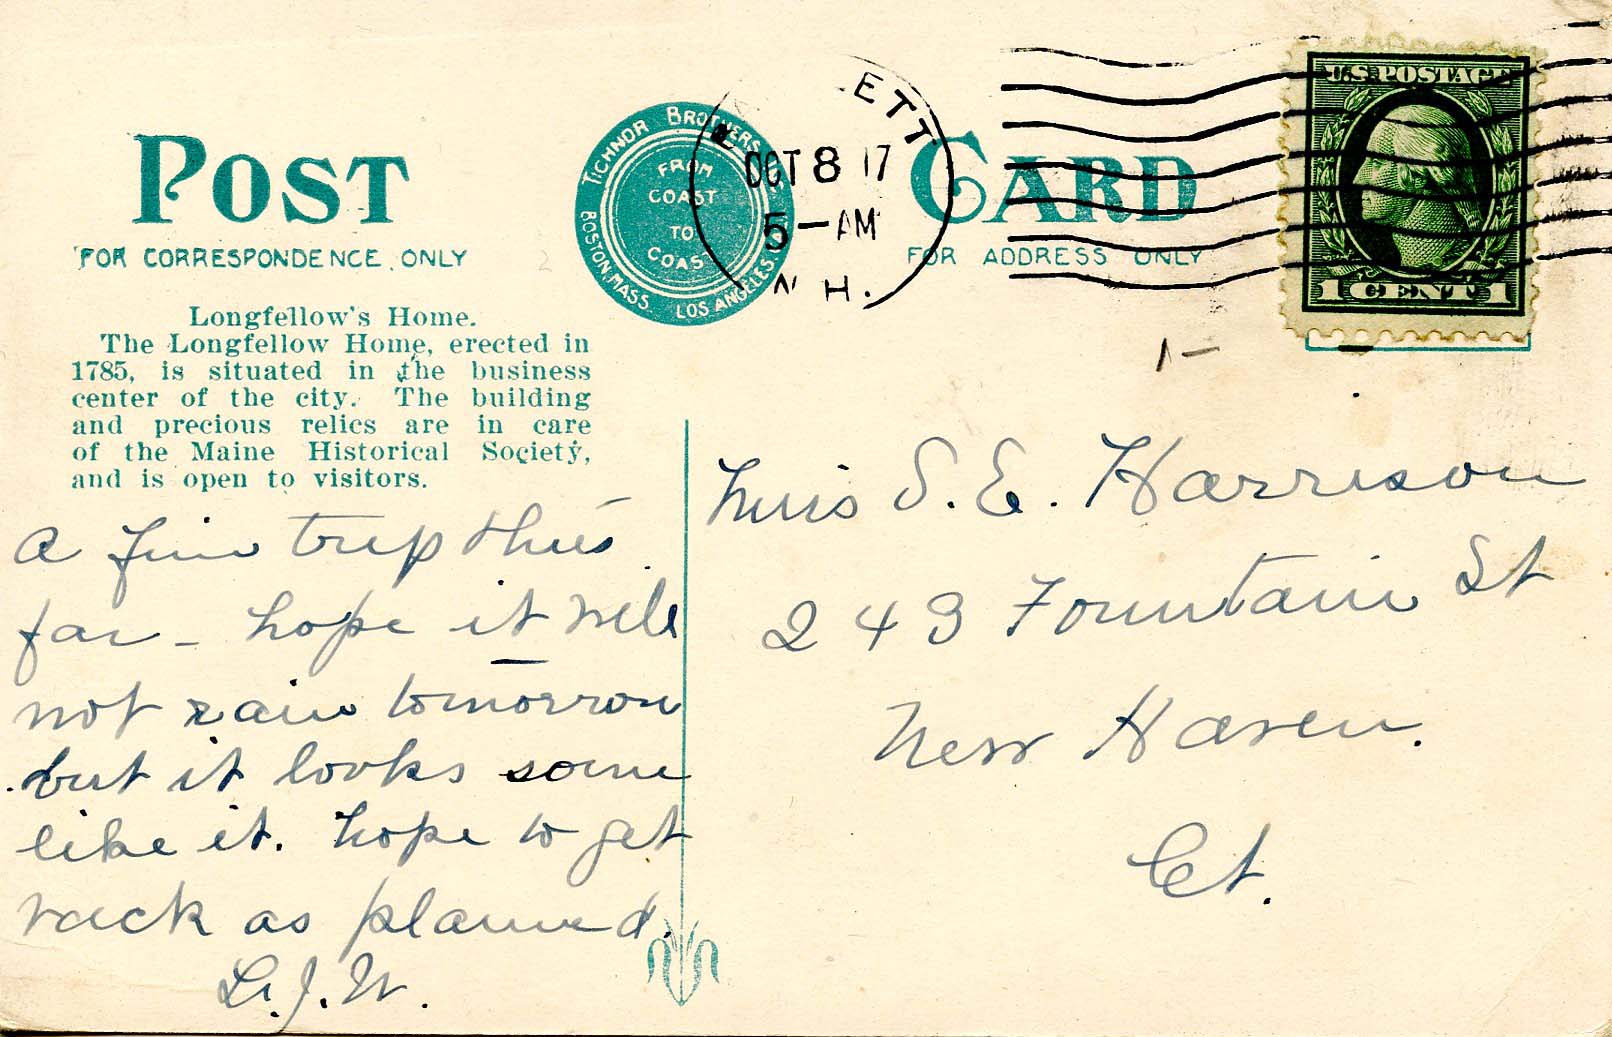 POST CARD
FOR CORRESPONDENCE ONLY
FOR ADDRESS ONLY
TICHNOR BROTHERS
BOSTON, MASS. LOS ANGELES
FROM
COAST
TO
COAST
OCT 8 17
5-AM
N.H.
U.S. POSTAGE
1 CENT 1
Longfellow's Home.
The Longfellow Home, erected in
1785, is situated in the business
center of the city. The building
and precious relics are in care
of the Maine Historical Society,
and is open to visitors.
A fine trip thus
far - hope it will
not rain tomorrow
but it looks some
like it. hope to get
back as planned.
L.J.W.
Miss S. E. Harrison
243 Fountain St
New Haven.
Ct.